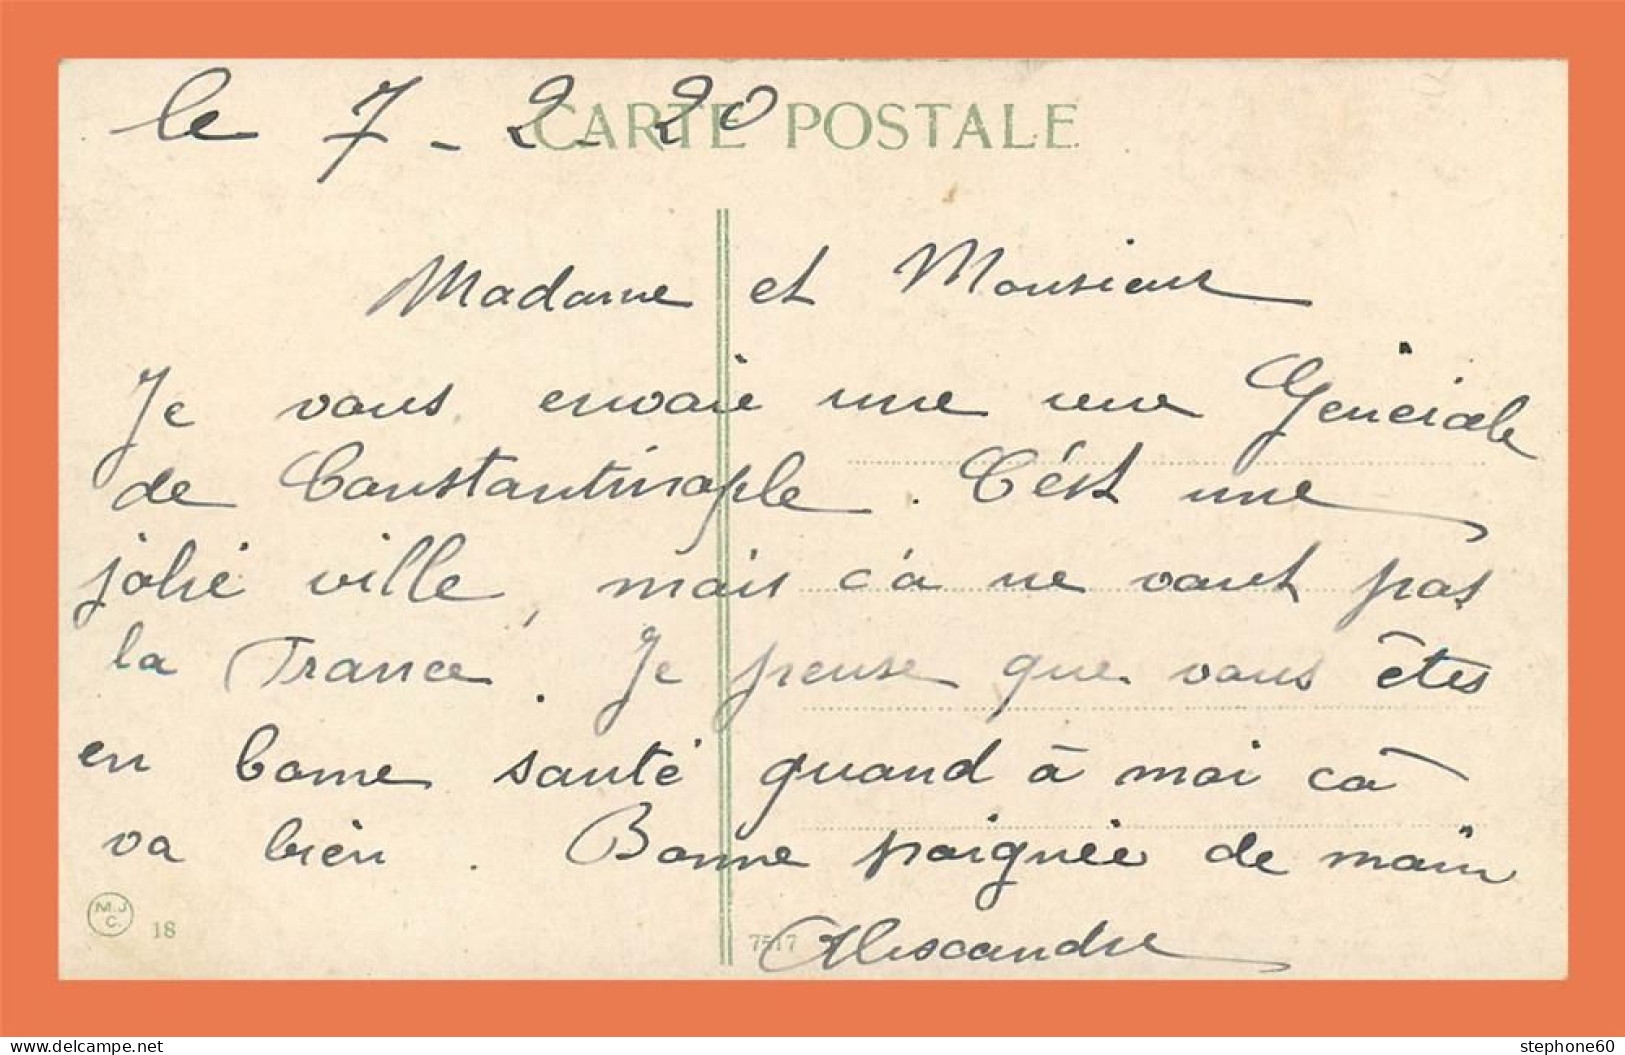 le 7 - 2 - 20
CARTE POSTALE
Madame et Monsieur
Je vous envoie une vue Générale
de Constantinople. C'ést une
jolie ville, mais c'a ne vaut pas
la France. Je pense que vous êtes
en bonne santé quand à moi cà
va bien. Bonne poignée de main
Alescandre
M.J
C.
18
7517
delcampe.net
stephone60